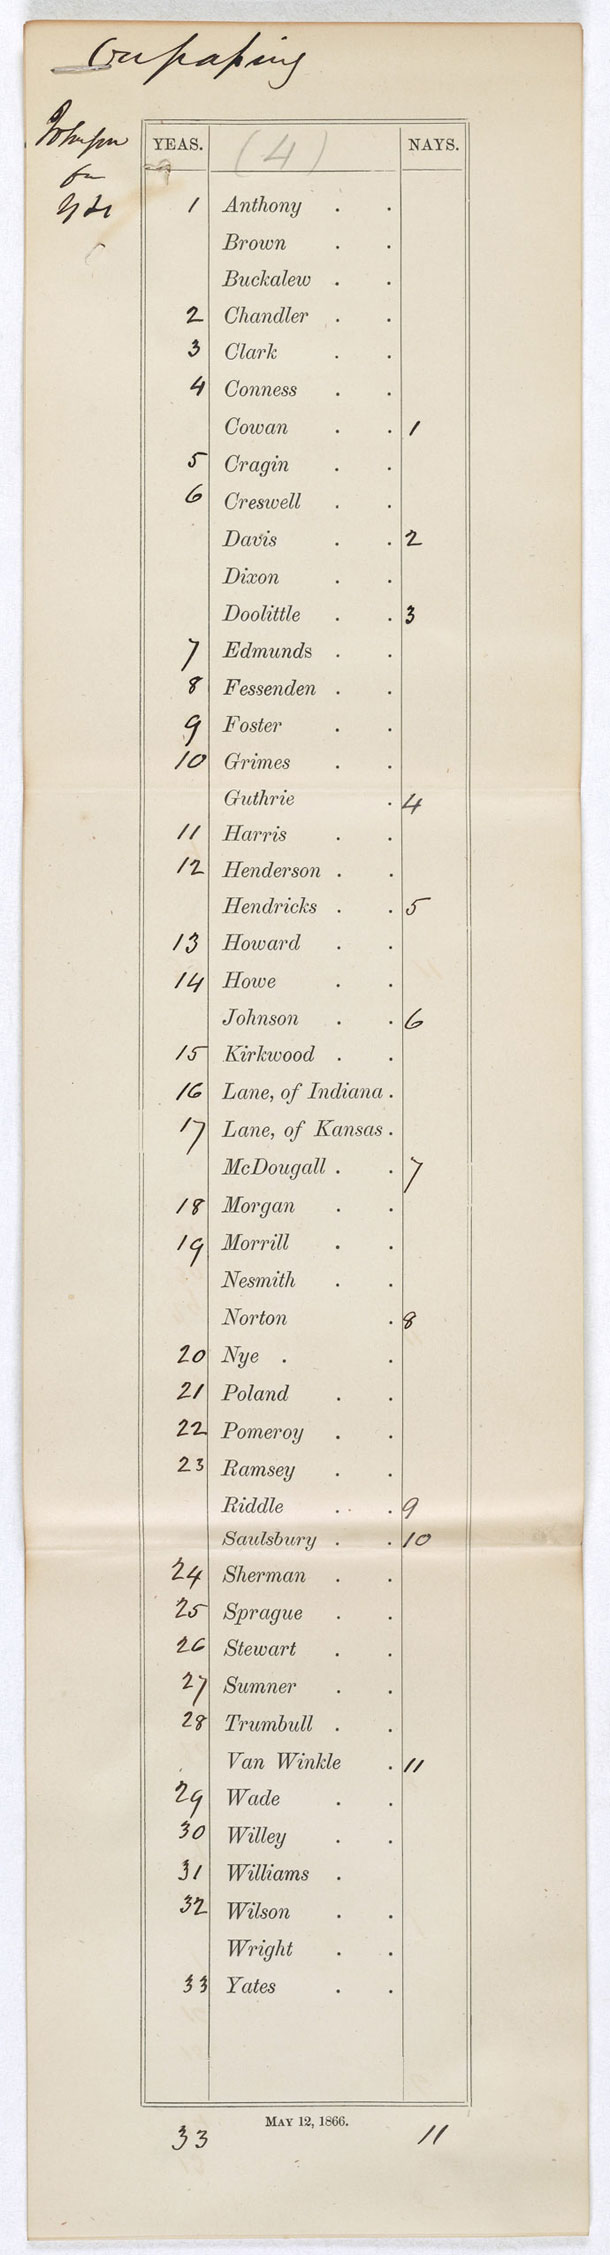 On passing
Johnson
for
YEAS. (4) NAYS.
1 Anthony . .
Brown . .
Buckalew . .
2 Chandler . .
3 Clark . .
4 Conness . .
Cowan . . 1
5 Cragin . .
6 Creswell . .
Davis . . 2
Dixon . .
Doolittle . . 3
7 Edmunds . .
8 Fessenden . .
9 Foster . .
10 Grimes . .
Guthrie . 4
11 Harris . .
12 Henderson . .
Hendricks . . 5
13 Howard . .
14 Howe . .
Johnson . . 6
15 Kirkwood . .
16 Lane, of Indiana .
17 Lane, of Kansas .
McDougall . . 7
18 Morgan . .
19 Morrill . .
Nesmith . .
Norton . 8
20 Nye . .
21 Poland . .
22 Pomeroy . .
23 Ramsey . .
Riddle . . 9
Saulsbury . . 10
24 Sherman . .
25 Sprague . .
26 Stewart . .
27 Sumner . .
28 Trumbull . .
Van Winkle . 11
29 Wade . .
30 Willey . .
31 Williams .
32 Wilson . .
Wright . .
33 Yates . .
May 12, 1866.
33 11